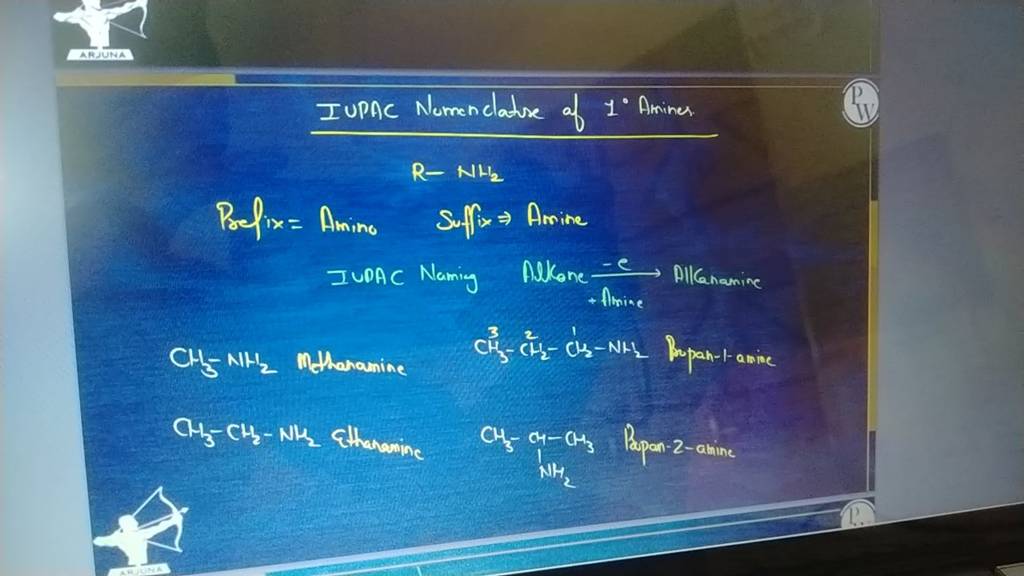 ARJUNA
PW
IUPAC Nomenclature of 1° Amines
R– NH2
Prefix = Amino Suffix ⇒ Amine
IUPAC Naming Alkane –e + Amine → Alkanamine
CH3–NH2 Methanamine
3 2 1
CH3–CH2–CH2–NH2 Propan-1-amine
CH3–CH2–NH2 Ethanamine
CH3–CH–CH3 Propan-2-amine
NH2
ARJUNA
PW